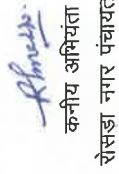 कनीय अभियंता
रोसड़ा नगर पंचायत